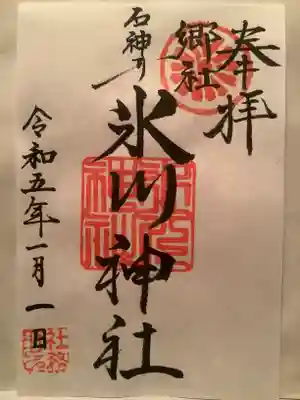 奉拝
郷社
石神井
氷川神社
令和五年一月一日